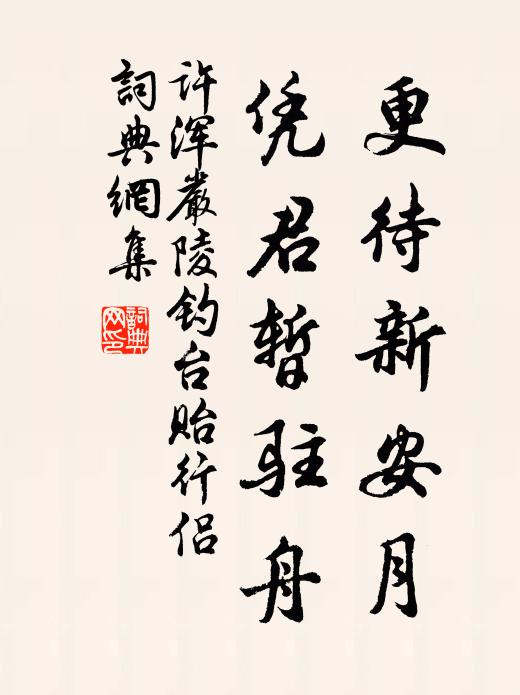 更待新安月
凭君暂驻舟
许浑严陵钓台贻行侣
詞典網集
詞典网印